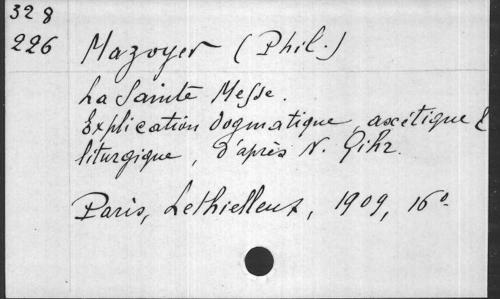 328
226
Mazoyer (Phil.)
La Sainte Messe.
Explication dogmatique, ascétique &
liturgique, d'après N. Gihr.
Paris, Lethielleux, 1909, 16º